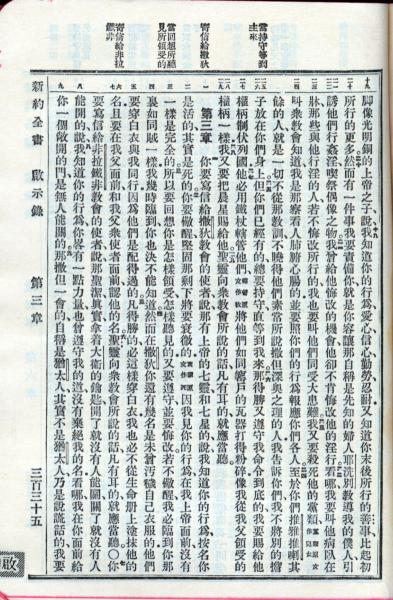 當持守等到主來
寄信給撒狄
當回想所聽見所領受的
寄信給非拉鐵非
腳像光明銅的上帝之子說我知道你的行為愛心信心勤勞忍耐又知道你末後所行的善事比起初
所行的更多然而有一件事我要責備你就是你容讓那自稱是先知的婦人耶洗別教導我的僕人引
誘他們行姦淫喫祭偶像之物我曾給他悔改的機會他卻不肯悔改他的淫行看哪我要叫他病臥在
牀那些與他行淫的人若不悔改所行的我也要叫他們同受大患難我又要殺死他的黨類黨類原文作兒女
叫眾教會知道我是那察看人肺腑心腸的並要照你們的行為報應你們各人至於你們推雅推喇其
餘的人就是一切不從那教訓不曉得他們素常所說撒但深奧之理的人我告訴你們我不將別的擔
子放在你們身上但你們已經有的總要持守直等到我來那得勝又遵守我命令到底的我要賜給他
權柄制伏列國他必用鐵杖轄管他們轄管原文作牧將他們如同窰戶的瓦器打得粉碎像我從我父領受的
權柄一樣我又要把晨星賜給他聖靈向眾教會所說的話凡有耳的就應當聽
第三章 你要寫信給撒狄教會的使者說那有上帝的七靈和七星的說我知道你的行為按名你
是活的其實是死的你要儆醒堅固那剩下將要衰微的衰微原文作死因我見你的行為在我上帝面前沒有
一樣是完全的所以要回想你是怎樣領受怎樣聽見的又要遵守並要悔改若不儆醒我必臨到你那
裏如同賊一樣我幾時臨到你也決不能知道然而在撒狄你還有幾名是未曾污穢自己衣服的他們
要穿白衣與我同行因為他們是配得過的凡得勝的必這樣穿白衣我也必不從生命冊上塗抹他的
名且要在我父面前和我父眾使者面前認他的名聖靈向眾教會所說的話凡有耳的就應當聽〇你
要寫信給非拉鐵非教會的使者說那聖潔真實拿着大衛的鑰匙開了就沒有人能關關了就沒有人
能開的說我知道你的行為你略有一點力量也曾遵守我的道沒有棄絕我的名看哪我在你面前給
你一個敞開的門是無人能關的那撒但一會的自稱是猶太人其實不是猶太人乃是說謊話的我要
新約全書 啟示錄 第三章 三百三十五
啟